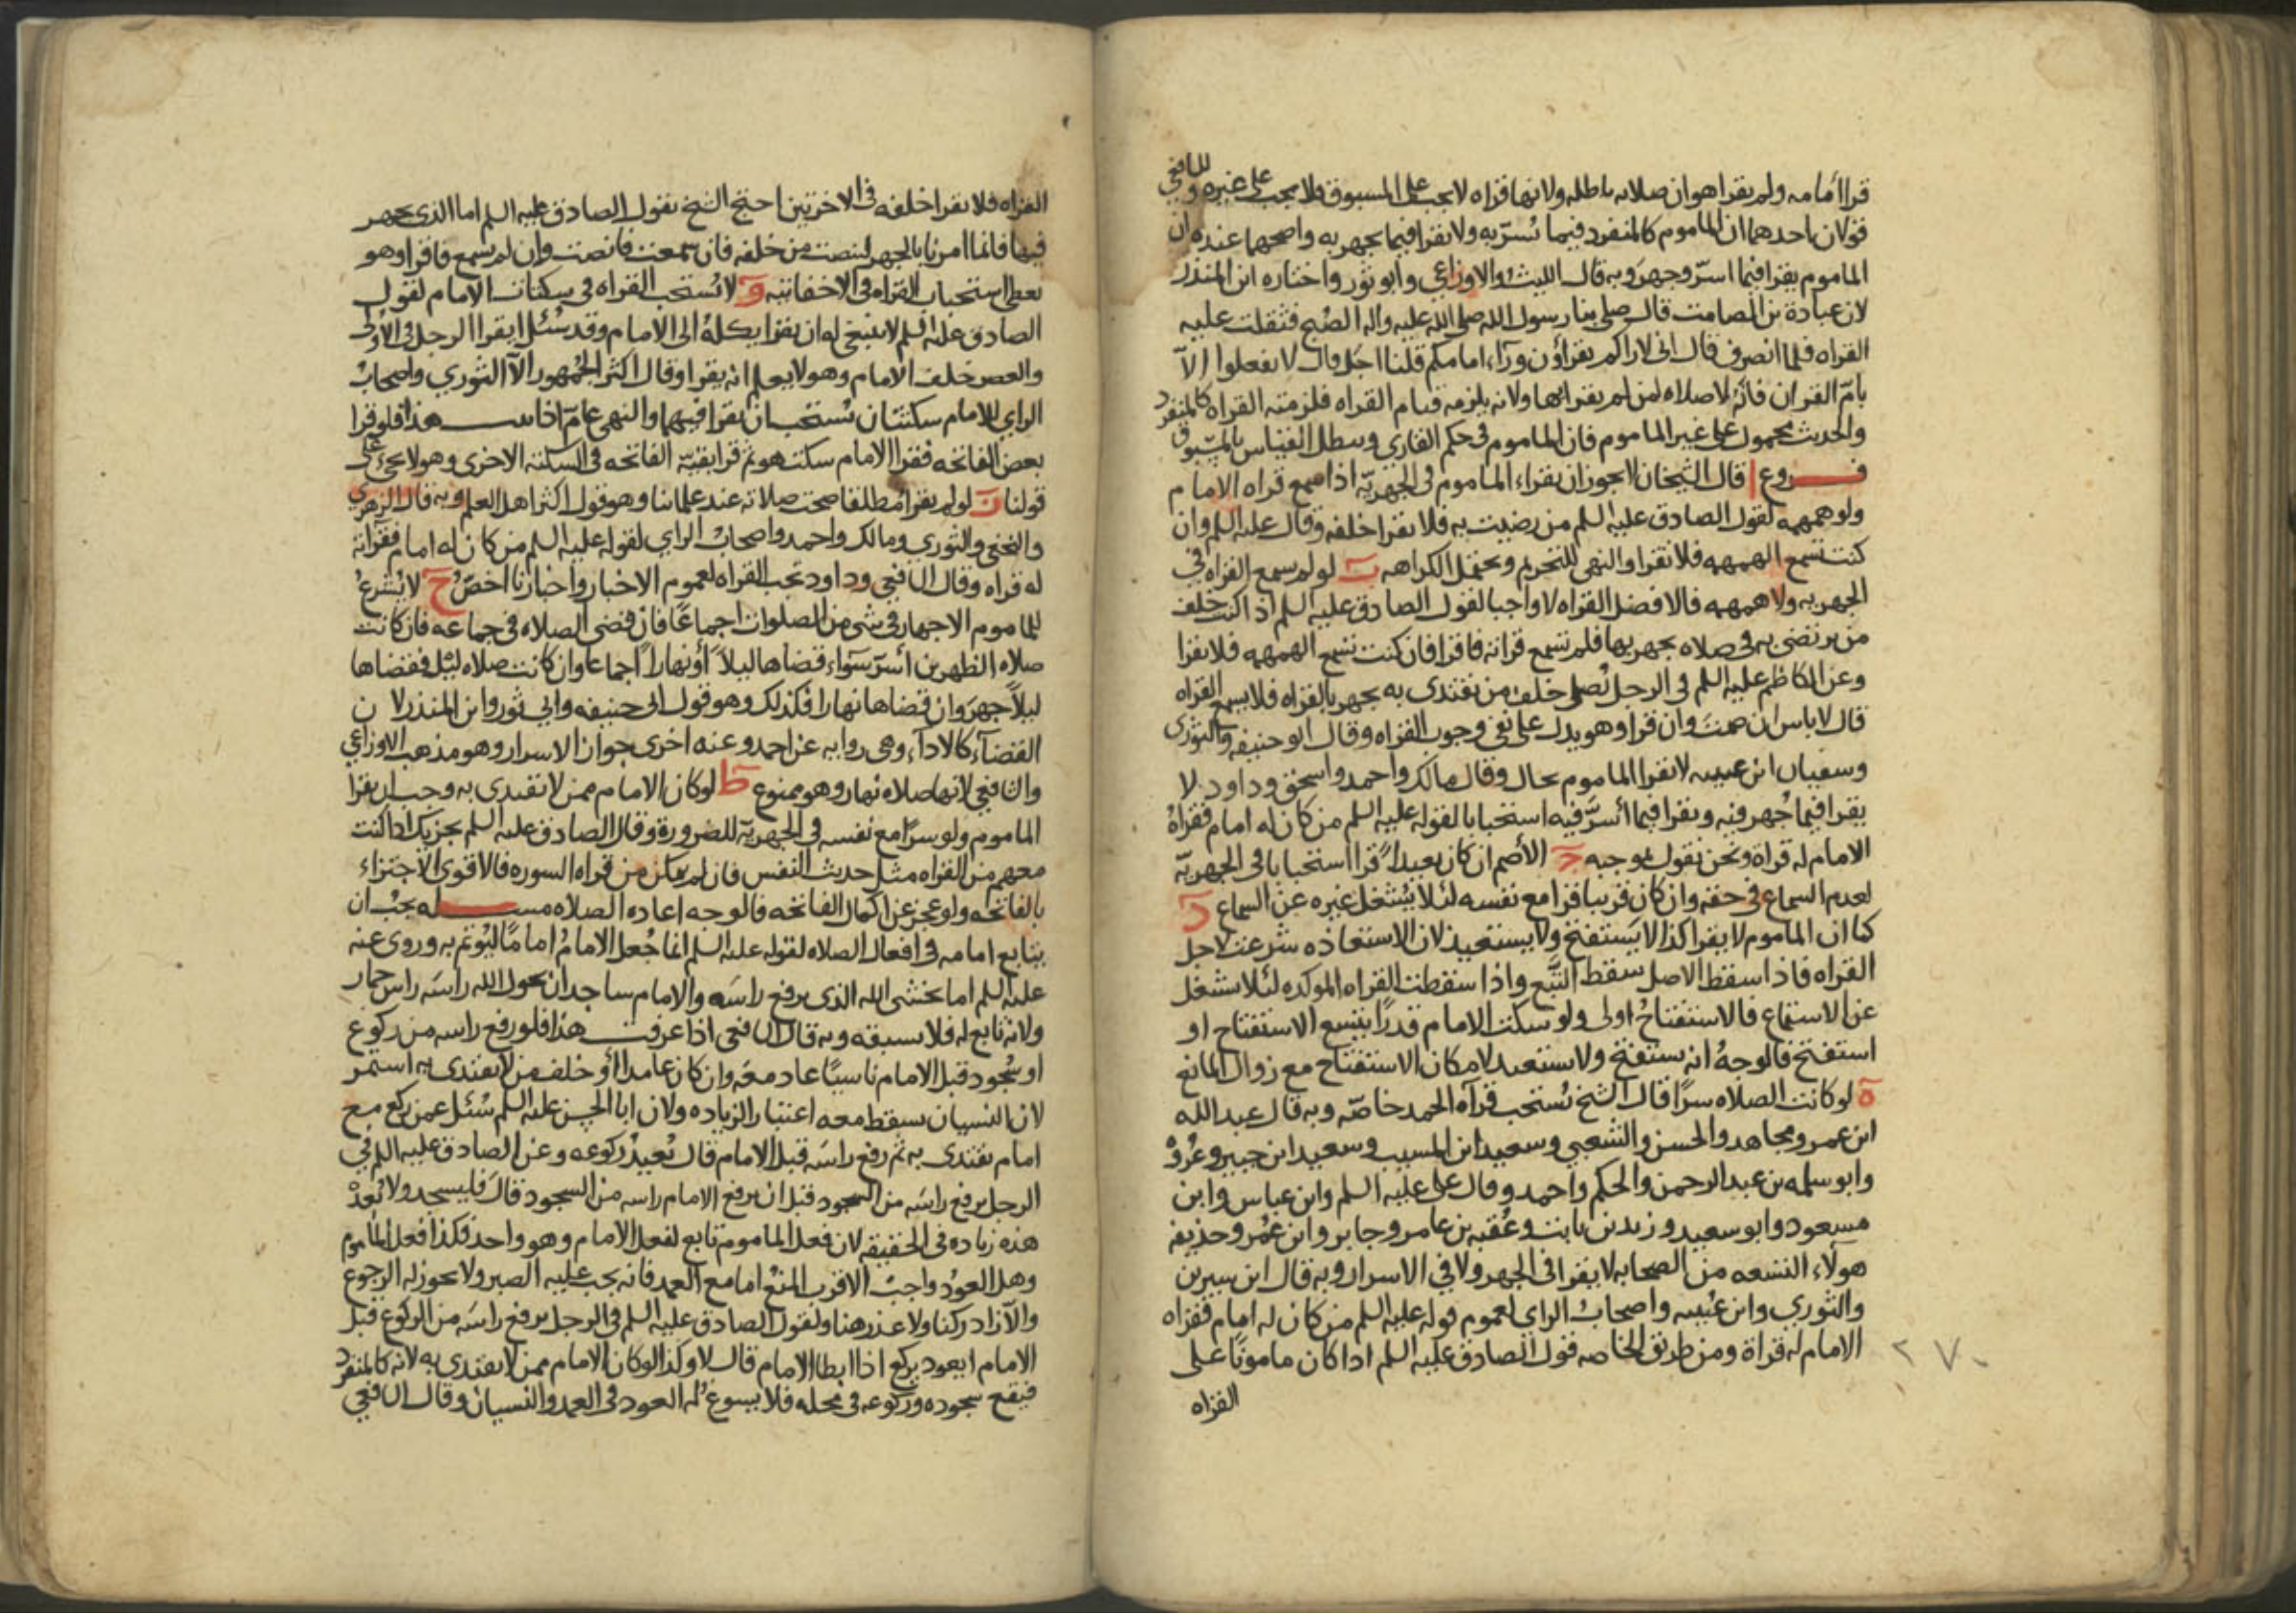 قرا أمامه ولم يقرا هو ان صلاته باطله ولانها قراه لا يجب على المسبوق فلا يجب على غيره وللشافعي
قولان احدهما ان الماموم كالمنفرد فيما يُسرّ به ولا يقرا فيما يجهر به واصحهما عنده ان
الماموم يقرا فيما اسرّ وجهرَ وبه قال الليث والاوزاعي وابو ثور واختاره ابن المنذر
لان عبادة بن الصامت قال صلى بنا رسول الله صلى الله عليه واله الصُبح فثقلت عليه
القراه فلما انصرف قال انى لاراكم تقراؤن ورآء امامكم قلنا اجَل قال لا تفعلوا الاّ
بامّ القران فانّه لا صلاه لمن لم يقرا بها ولانه يلزمه قيام القراه فلزمته القراه كالمنفرد
والحديث محمول على غير الماموم فان الماموم في حكم القارى وسطل القياس بالمسبوق
فروع ا قال الشيخان لا يجوز ان يقراء الماموم فى الجهريّه اذا سمع قراه الامام
ولو همهمه لقول الصادق عليه السلم من رضيت به فلا تقرا خلفه وقال عليه السلم وان
كنت تسمع الهمهمه فلا تقرا والنهى للتحريم ويحتمل الكراهه ب لو لم يسمع القراه في
الجهريه ولا همهمه فالافضل القراه لا واجبا لقول الصادق عليه السلم اذا كنت خلف
من يرتضى به فى صلاه يجهر بها فلم تسمع قراته فاقرا فان كنت تسمع الهمهمه فلا تقرا
وعن الكاظم عليه السلم فى الرجل يُصلى خلف من يقتدى به يجهر بالقراه فلا يسمع القراه
قال لا باس ان صمتَ وان قرا وهو يدل على نفى وجوب القراه وقال ابو حنيفه والثورى
وسفيان ابن عيينه لا يقرا الماموم بحال وقال مالك واحمد واسحق وداود لا
يقرا فيما جُهر فيه ويقرا فيما أسرّ فيه استحبابا لقوله عليه السلم من كان له امام فقراهُ
الامام له قراه ونحن نقول بموجبه ج الأصم ان كان بعيدا ً قرا استحبابا فى الجهريّه
لعدم السماع فى حقه وان كان قريبا قرا مع نفسه لئلا يشتغل غيره عن السماع د
كما ان الماموم لا يقرا كذا لا يَستفتح ولا يستعيذ لان الاستعاذه شرعت لاجل
القراه فاذا سقط الاصل سقط التَّبع واذا سقطت القراه الموكده لئلا يشتغل
عن الاستماع فالاستفتاحُ اولى ولو سكت الامام قدرًا يتسع الاستفتاح او
استفتح فالوجهُ انه يستفتح ولا يستعيد لامكان الاستفتاح مع زوال المانع
ه لو كانت الصلاه سرًا قال الشيخ يُستحب قرآه الحمد خاصّه وبه قال عبد الله
ابن عمرو ومجاهد والحسن والشعبي وسعيد ابن المسيب وسعيد ابن جبير وعُروْ
وابو سلمه بن عبد الرحمن والحكم واحمد وقال على عليه السلم وابن عباس وابن
مسعود وابو سعيد وزيد بن ثابت وعُقبه بن عامر وجابر وابن عمُر وحذيفه
هولاء التسعه من الصحابه لا يقرا فى الجهر ولا في الاسرار وبه قال ابن سيرين
والثوري وابن عُيينه واصحابُ الراي لعموم قوله عليه السلم من كان له امام فقراه
الامام له قراة ومن طريق الخاصه قول الصادق عليه السلم اذا كان مامونًا على
القراه
٢٧٠
القراه فلا تقرا خلفه فى الاخرتين احتج الشيخ بقول الصادق عليه السلم اما الذى يجهر
فيها فانما امرنا بالجهر لينصت من خلفه فان سمعت فانصت وان لم تسمع فاقرا وهو
يعطى استحباب القراه فى الاخفاتيه و لا يُستحب القراه فى سكتات الامام لقول
الصادق عليه السلم لا ينبغى له ان يقرا يكلهُ الى الامام وقد سُئل ايقرا الرجل فى الأولى
والعصر خلف الامام وهو لا يعلم انه يقرا وقال اكثر الجُمهور الاّ الثوري واصحابُ
الراي للامام سكتتان يُستحب ان يقرا فيهما والنهى عامّ اذا ثبت هذا فلو قرا
بعض الفاتحه فقرا الامام سكت هو ثم قرا بقيّه الفاتحه فى السكتة الاخرى وهو لا يجيُ على
قولنا ز لو لم يقرا مطلقا صحت صلاته عند علمائنا وهو قول اكثر اهل العلم وبه قال الزهرى
والنخعى والثوري ومالك واحمد واصحابُ الراي لقوله عليه السلم من كان له امام فقراته
له قراه وقال الشافعي وداود تجب القراه لعموم الاخبار واخبارنا اخصّ ح لا يُشرعُ
للماموم الاجهار فى شى من الصلوات اجماعًا فان قضى الصلاه فى جماعه فان كانت
صلاه الظهرين أسرّ سَواء قضاها ليلاً أو نهاراً اجماعا وان كانت صلاه ليْل فقضاها
ليلاً جهرَ وان قضاها نهارا فكذلك وهو قول ابى حنيفه وابي ثور وابن المنذر لان
القضآء كالاداء وهى روايه عن احمد وعنه اخرى جواز الاسرار وهو مذهب الاوزاعي
والشافعي لانها صلاه نهار وهو ممنوع ط لو كان الامام ممن لا يقتدى به وجب ان يقرا
الماموم ولو سرًا مع نفسه فى الجهريّه للضروره وقال الصادق عليه السلم يجزيك اذا كنت
معهم من القراه مثل حديث النفس فان لم يتمكن من قراه السوره فالاقوى الاجتزاء
بالفاتحه ولو عجز عن اكمال الفاتحه فالوجه اعاده الصلاه مسله يجبُ ان
يتابع امامه فى افعال الصلاه لقوله عليه السلم انما جُعل الامامُ امامًا ليُوتم به وروى عنه
عليه السلم اما يخشى الله الذى يرفع راسَه والامام ساجد ان يحول الله راسَه راس حمار
ولانه تابع له فلا يسبقه وبه قال الشافعى اذا عرفت هذا فلو رفع راسه من ركوع
او سُجود قبل الامام ناسيًا عاد معَه وان كان عامداً أو خلف من لا يقتدى به استمر
لان النسيان يسقط معه اعتبار الزياده ولان ابا الحسن عليه السلم سُئل عمن ركع مع
امام يقتدى به ثم رفع راسَه قبل الامام قال يُعيدُ ركوعه وعن الصادق عليه السلم في
الرجل يرفع راسَه من السجود قبل ان يرفع الامام راسه من السجود قالَ فليسجد ولا تُعدّ
هذه زياده فى الحقيقه لان فعل الماموم تابع لفعل الامام وهو واحد فكذا فعل الماموم
وهل العودُ واجبُ الاقرب المنعُ اما مع العمد فانه يجب عليه الصبر ولا يجوز له الرجوع
والاّ زاد ركنا ولا عذر هنا ولقول الصادق عليه السلم فى الرجل يرفع راسَه من الركوع قبل
الامام ايعود يركع اذا ابطا الامام قال لا وكذا لو كان الامام ممن لا يقتدى به لانه كالمنفرد
فيقع سجوده وركوعه فى محله فلا يسوغُ له العود فى العمد والنسيان وقال الشافعي